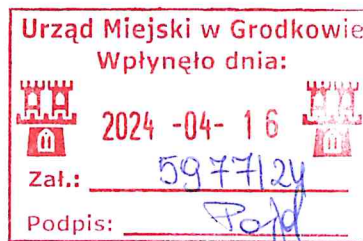 Urząd Miejski w Grodkowie
Wpłynęło dnia:
2024 -04- 16
Zał.: 5977/24
Podpis: